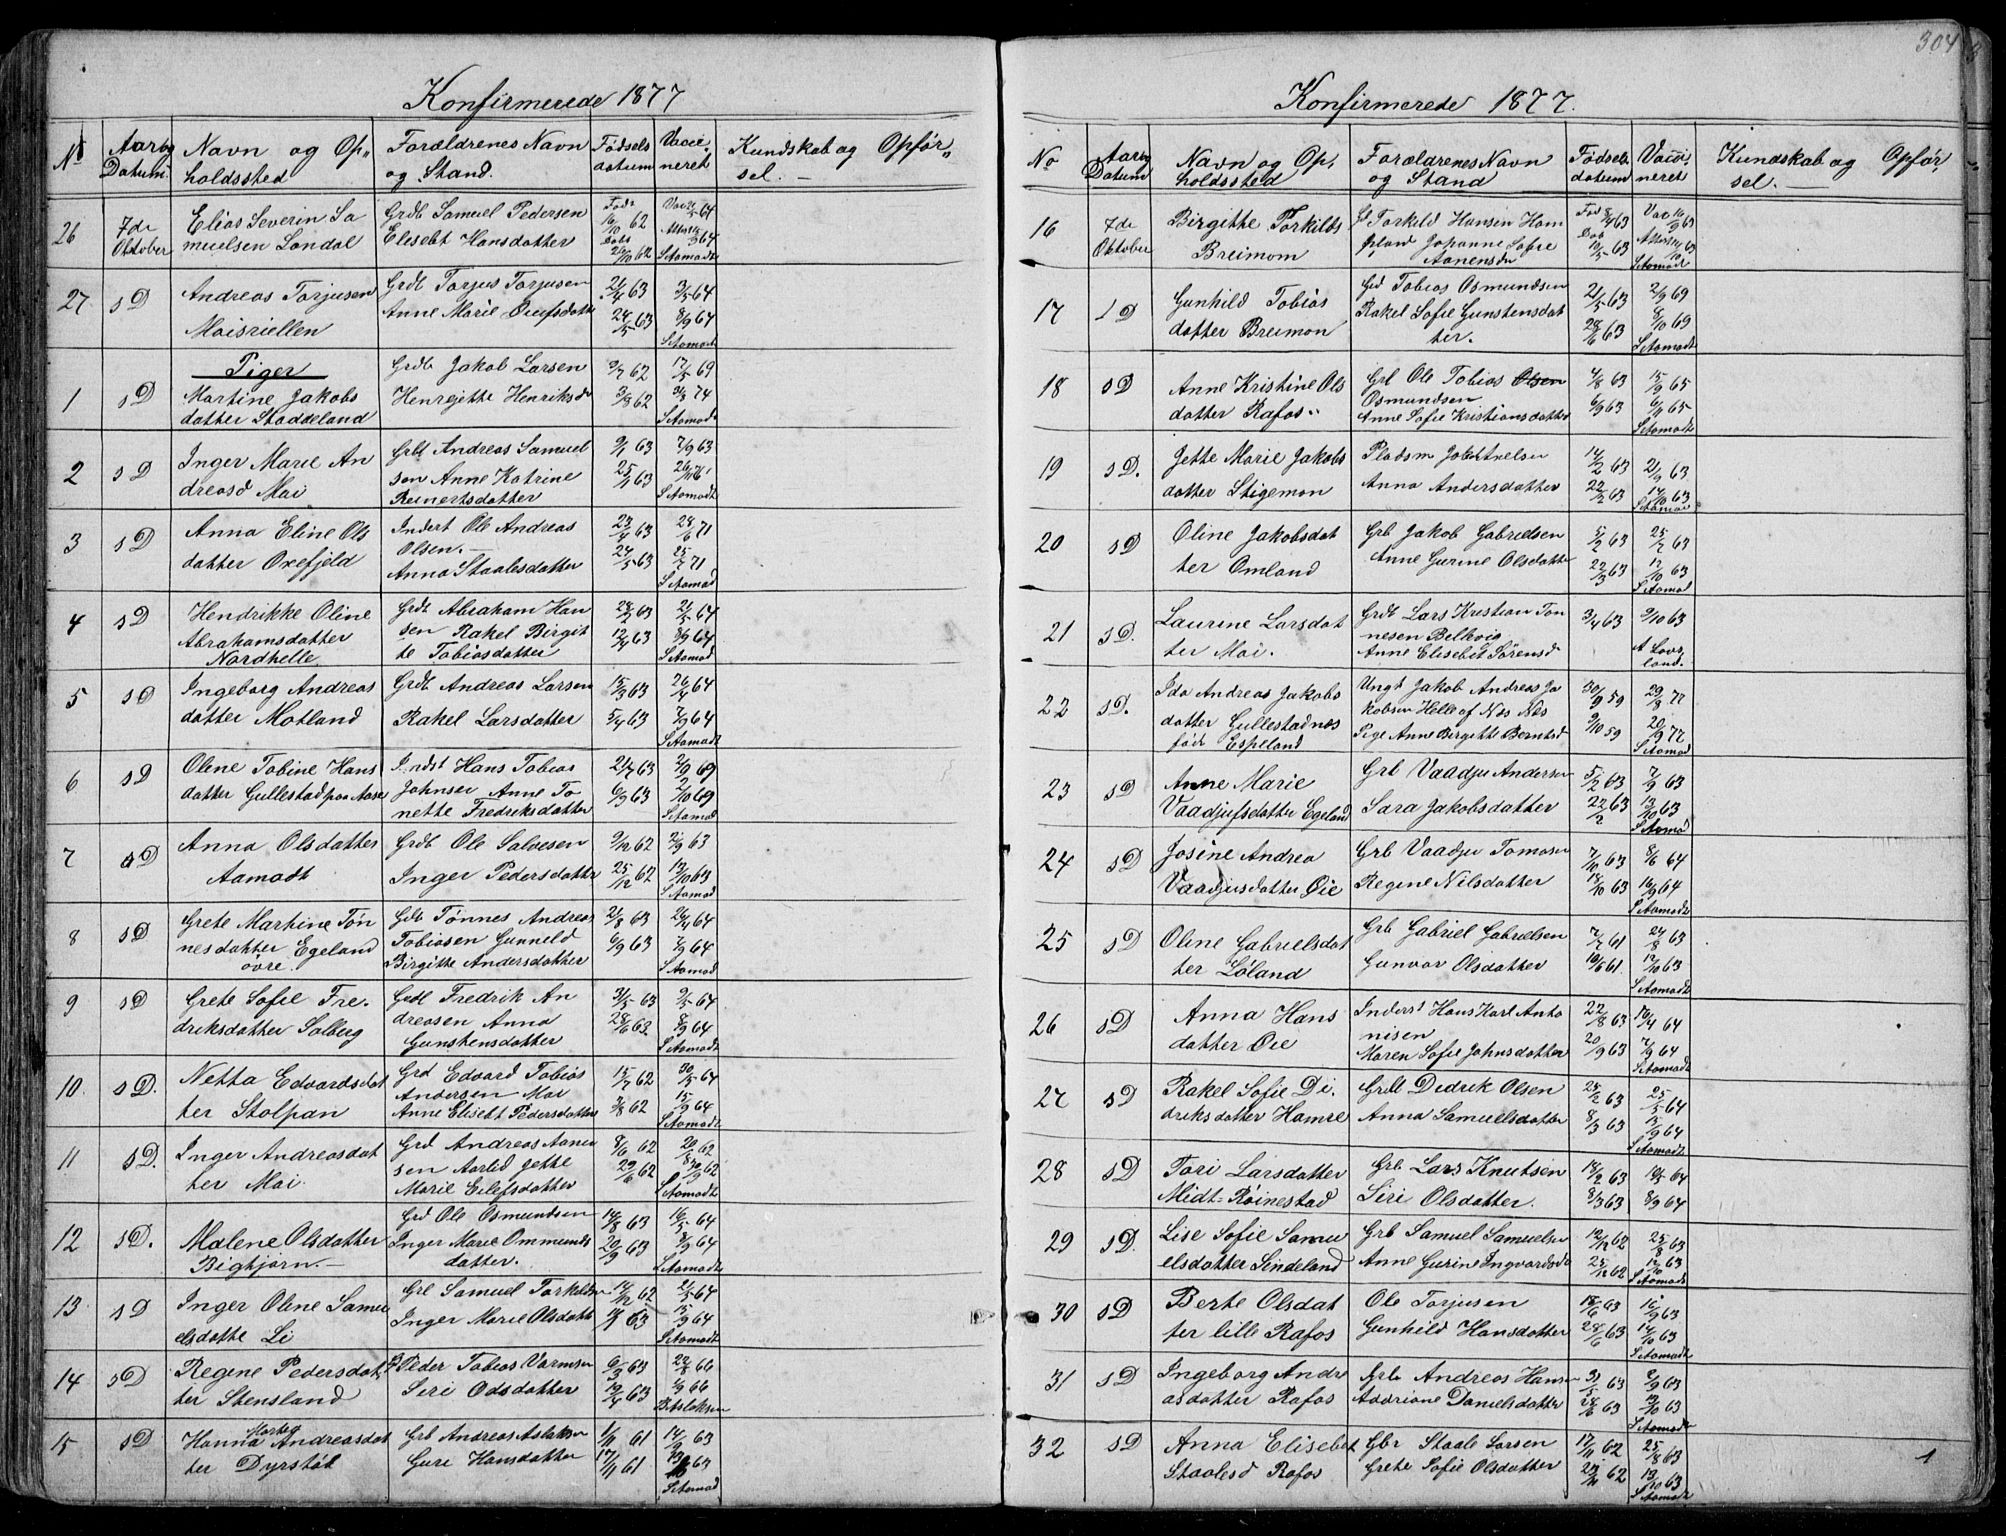 304
Konfirmerede 1877
No
Aar og Datum.
Navn og Op„
holdssted
Forældrenes Navn
og Stand.
Fødsels
datum
Vacci„
neret
Kundskab og Opfør„
sel. —
26
7de
Oktober
Elias Severin Sa
muelsen Londal
Grdb Samuel Pedersen
Elisebt Hansdatter
Født
16/10 62
Døbt
/10 62
64
64
S Aamodt
27
s D
Andreas Torjusen
Moisriellen
Grdb Torjus Torjusen
Anne Marie
21/4 63
24/5 63
3/5 64
8/9 64
S Aamodt
Piger
1
s D
Martine Jakobs
datter Staddeland
Grdb Jakob Larsen
Henrejette Henriksd
9/7 62
3/8 62
17/5 69
74
S Aamodt
2
s D
Inger Marie An
dreasd Moi
Grb Andreas Samuel
sen Anne Katrine
Reinertsdatter
9/1 63
25/1 63
7/9 63
S Aamodt
3
s D
Anna Eline Ols
datter Oxefjeld
Inderst Ole Andreas
Olsen. —
Anna Staalesdatter
23/4 63
24/5 63
28/6 71
25/7 71
S Aamod
4
s D
Hendrikke Oline
Abrahamsdatter
Nordhelle
Grdb Abraham Han
sen Rakel Birgit
te Tobiasdatter
28/2 63
12/4 63
21/5 64
64
S Aamod
5
s D
Ingeborg Andreas
datter Motland
Grdb Andreas Larsen
Rakel Larsdatter
15/3 63
5/4 63
26/4 64
7/9 64
S Aamodt
6
s D
Oline Tobine Hans
datter Gullestad paa Aase
Hans Tobias
Johnsen Anne To
nette Fredriksdatter
21/7 63
6/9 63
2/9 69
2/10 69
S Aamod
7
s D
Anna Olsdatter
Aamodt
Grdb Ole Salvesen
Inger Pedersdatter
9/12 62
25/12 62
2/9 63
12/10 63
S Aamod
8
s D
Grete Martine Tøn
nesdatter Egeland
övre.
Gdb Tønnes Andreas
Tobiasen Gunneld
Birgitte Andersdatter
21/8 63
6/9 63
26/4 64
7/9 64
S Aamod
9
s D
Grete Sofie Fre„
driksdatter Solberg
Grdb Fredrik An
dreasen Anna
Gunstensdatter
31/5 63
28/6 63
9/5 64
8/9 64
S Aamodt
10
s D.
Netta Edvardsdat
ter Stolpan
Grd Edvard Tobias
Andersen Moi
Anne Elisebt Pedersdatter
15/7 62
3/8 62
30/5 64
15/9 64
S Aamodt
11
s D.
Inger Andreasdat
ter Moi
Grd Andreas Aanen
sen Aarlid Jette
Marie Eilefsdatter
8/6 62
29/6 62
20/8 62
62
S Aamodt
12
s D.
Malene Olsdatter
Bighjørn. —
Grd Ole Osmundsen
Inger Marie Ommunds
datter.
14/8 63
20/9 63
16/5 64
8/9 64
S Aamodt
13
s D
Inger Oline Samu
elsdatte Li
Gre Samuel Torkelsen
Inger Marie Olsdatt
14/12 62
63
2/5 64
15/9 64
S Aamodt
14
s D
Regine Pedersdat
ter Stensland
Peder Tobias Varmsen
Siri Odsdatter
6/3 63
12/4 63
22/8 66
66
15
s D
Hanna Andreasdat
ter Dyrstøl
Grb Andreas Aslaksen
Guri Hansdatter
61
17/11 61
14/9 63
63
S Aamod
Konfirmerede 1877.
No
Aar og
Datum
Navn og Op„
holdssted
Forældrenes Navn
og Stand
Fødsels
datum
Vacci„
neret
Kundskab og Opfør„
sel. —
16
7de
Oktober
Birgitte Torkilds
Breimom
Torkild Hansen Ham
Johanne Sofie
Aanensdr
Fød 8/4 63
Døb
10/5 63
63
S Aamodt
17
s D
Gunhild Tobias
datter Breimon
Grd Tobias Osmundsen
Rakel Sofie Gunstensdat
ter.
21/5 63
28/6 63
2/9 69
8/10 69
S Aamodt
18
s D
Anne Kristine Ols
datter Rafos„
Grb Ole Tobias Olsen
Osmundsen
Anne Sofie Kristiansdatter
4/8 63
6/9 63
15/9 65
6/11 65
S Aamodt
19
s D.
Jette Marie Jakobs
datter Stigemon
Pladsm
Anna Andersdatter
14/2 63
22/2 63
2/9 63
14/10 63
S Aamod
20
s D
Oline Jakobsdat
ter Omland
Grb Jakob Gabrielsen
Anne Gurine Olsdatter
5/2 63
22/3 63
25/7 63
12/10 63
S Aamodt
21
s D.
Laurine Larsdat
ter Moi.
Grdb Lars Kristian Ton
nesen Belkvig
Anne Elisebet Sørensd
3/4 63
9/10 63
A Lovs
land.
22
s D.
Ida Andrea Jakobs
datter Gullestadnes
født Espeland
Ungk Jakob Andreas Ja
kobsen Helle af Nes Nes
Pige Anne Birgitte Berntsd
30/9 59
9/10 59
29/8 77
20/9 77
S Aamod
23
s D
Anne Marie
Vaadjufsdatter Egeland
Grb Vaadju Andersen
Sara Jakobsdatter
5/2 63
22/2 63
7/9 63
12/10 63
S Aamod
24
s D
Josine Andrea
Vaadjusdatter Øie
Grb Vaadju Tomasen
Regine Nilsdatter
7/10 63
18/10 63
8/6 64
16/9 64
S Aamodt
25
s D
Oline Gabrielsdat
ter Løland
Grb Gabriel Gabrielsen
Gunvor Olsdatter
7/7 61
10/8 61
24/8 63
12/10 63
S Aamodt
26
s D
Anna Hans
datter Øie
Inderst Hans Karl Anto
nisen
Maren Sofie Johnsdatter
22/8 63
20/9 63
16/4 64
7/9 64
S Aamodt
27
s D
Rakel Sofie Di„
driksdatter Hamre
Grdb Didrik Olsen
Anna Samuelsdatter
24/2 63
8/3 63
25/5 64
15/9 64
S Aamodt
28
s D
Tori Larsdatter
Midt-Røinestad
Grb Lars Knutsen
Siri Olsdatter.
18/2 63
8/3 63
64
8/9 64
29
s D.
Lise Sofie Samu
elsdatter Sindeland
Grb Samuel Samuelsen
Anne Gurine Ingvardsda
12/12 62
25/12 62
25/8 63
12/10 63
S Aamodt
30
s D
Berte Olsdat
ter lille Rafos
Ole Torjusen
Gunhild Hansdatter
15/6 63
28/6 63
16/9 63
14/10 63
S Aamodt
31
s D
Ingeborg Andre
asdatter Rafos
Grb Andreas Hansen
Addriane Danielsdatter
31/5 63
28/6 63
2/9 63
12/10 63
S Aamodt
32
s D
Anna Elisebet
Staalesd Rafos
Gbr Staale Larsen
Grete Sofie Olsdatter
17/11 62
62
25/8 63
13/10 63
S Aamodt
1